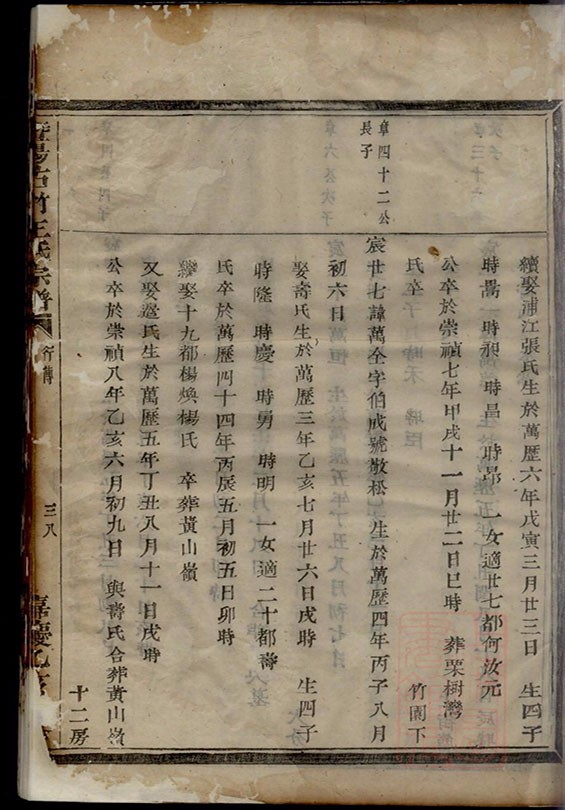 續娶浦江張氏生於萬歷六年戊寅三月廿三日 生四子
時暠 時昶 時昌 時昂 一女適廿七都何汝元
公卒於崇禎七年甲戌十一月廿二日巳時 葬栗樹灣
氏卒 竹園下
章四十二公
長子
宸廿七諱萬全字伯成號敬松 生於萬歷四年丙子八月
初六日
娶壽氏生於萬歷三年乙亥七月廿六日戌時 生四子
時隆 時慶 時勇 時明 一女適二十都壽
氏卒於萬歷四十四年丙辰五月初五日卯時
繼娶十九都楊煥楊氏 卒葬黃山嶺
又娶邊氏生於萬歷五年丁丑八月十一日戌時
公卒於崇禎八年乙亥六月初九日 與壽氏合葬黃山嶺
十二房
暨陽古竹王氏宗譜
行傳
三八
嘉慶乙